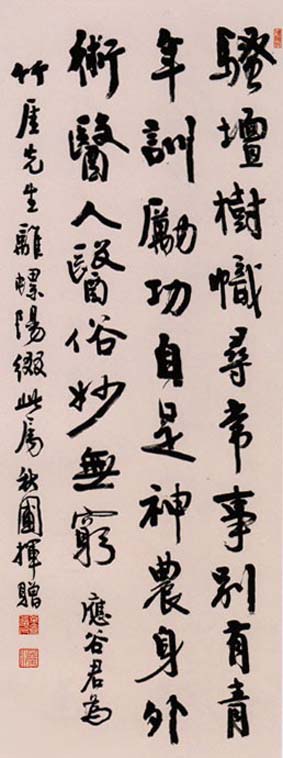 騷壇樹幟尋常事別有青
年訓勵功自是神農身外
術醫人醫俗妙無窮 應谷君為
竹厓先生離螺陽綴此屬秋圃揮贈